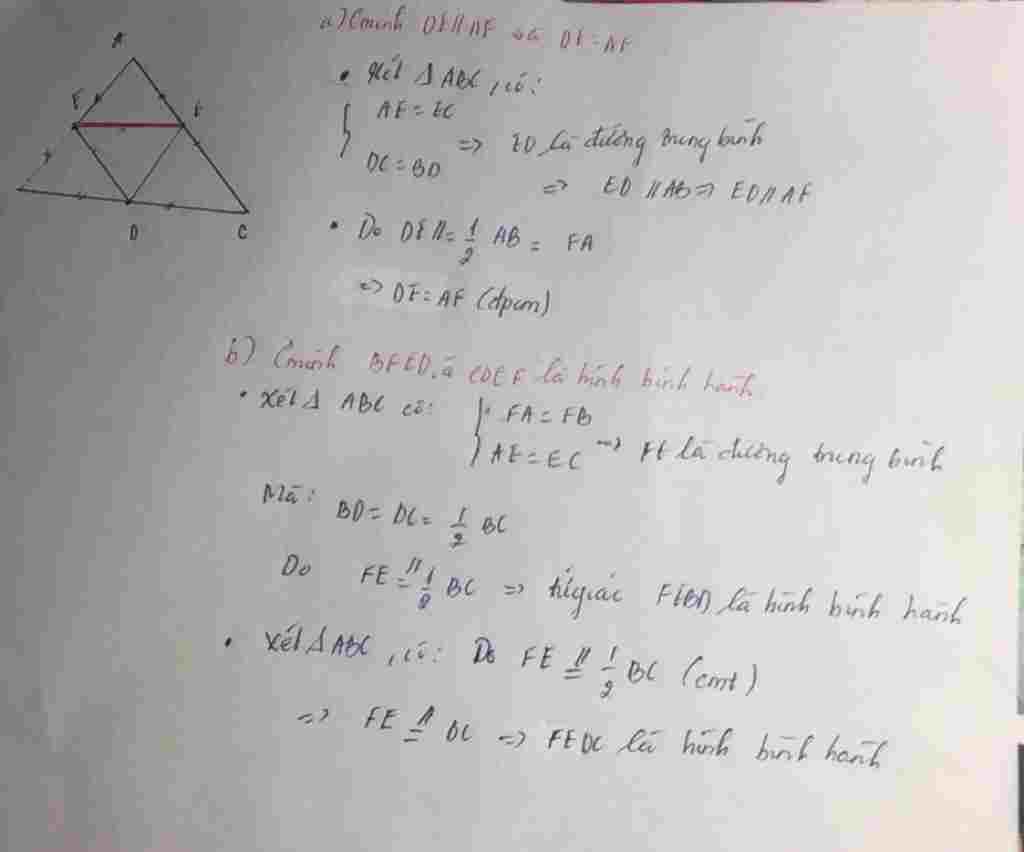 A
F
E
D
C
a) Cminh DE // AF và DE = AF
• Xét Δ ABC, có:
{ AE = EC
DC = BD => ED là đường trung bình
=> ED // AB => ED // AF
• Do DE //= 1/2 AB = FA
=> DE = AF (đpcm)
b) Cminh BFED và CDEF là hình bình hành
• Xét Δ ABC có: { FA = FB
AE = EC => FE là đường trung bình
Mà: BD = DC = 1/2 BC
Do FE //= 1/2 BC => tứ giác FEBD là hình bình hành
• Xét Δ ABC, có: Do FE //= 1/2 BC (cmt)
=> FE //= DC => FEDC là hình bình hành